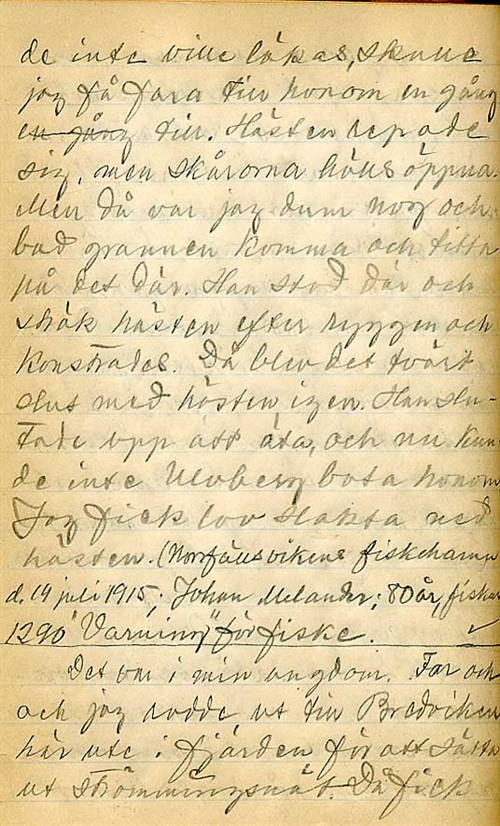 de inte ville läkas, skulle
jag få fara till honom en gång
en gång till. Hästen repade
sig, men skårorna hölls öppna.
Men då var jag dum nog och
bad grannen komma och titta
på det där. Han stod där och
strök hästen efter ryggen och
konstrades. Då blev det tvärt
slut med hästen igen. Han slu-
tade upp att äta, och nu kun-
de inte Ulvberg bota honom
Jag fick lov slakta ned
hästen. (Norrfällsvikens fiskehamn
d. 14 juli 1915; Johan Melander, 80 år, fiskar
1290 "Varning" för fiske.
Det var i min ungdom. Far och
och jag rodde ut till Bredviken
här ute i fjärden för att sätta
ut strömmingsnät. Då fick